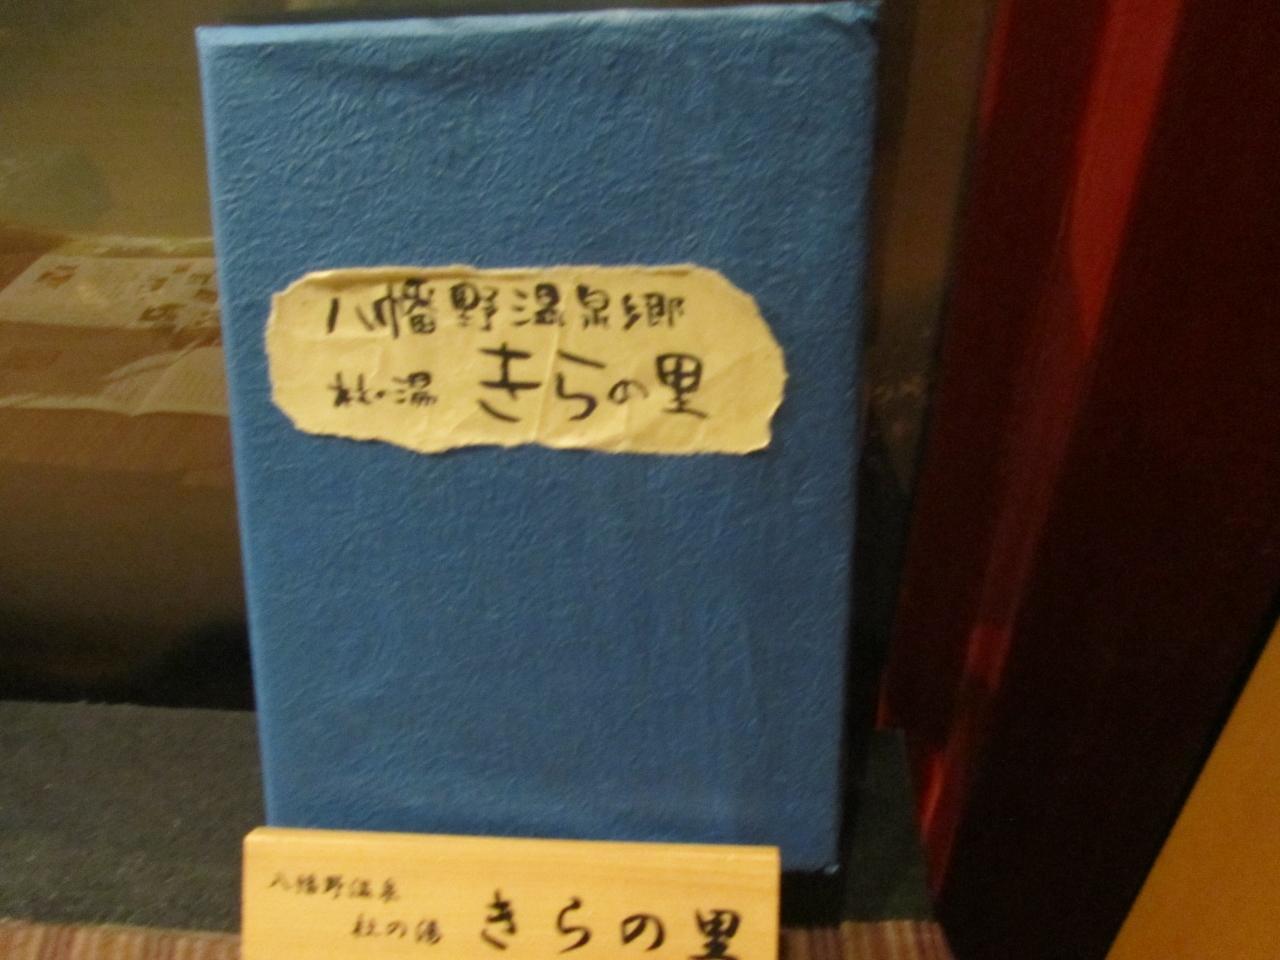 八幡野温泉郷
杜の湯 きらの里
八幡野温泉
杜の湯 きらの里